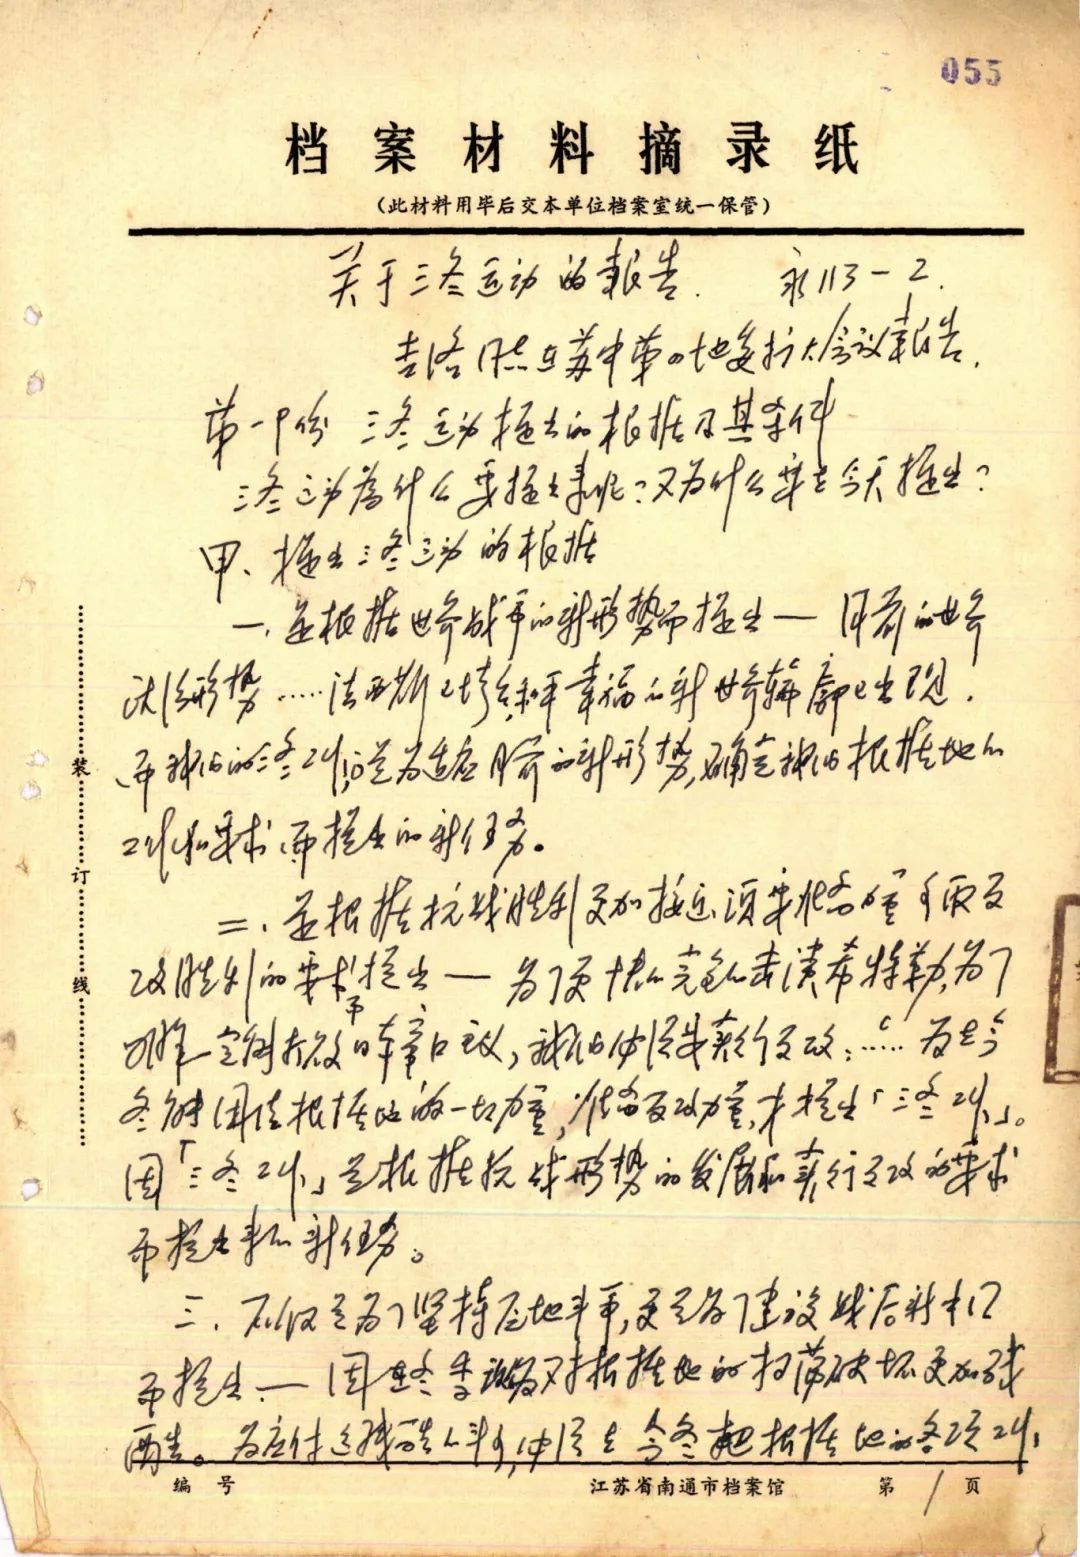 055
档案材料摘录纸
(此材料用毕后交本单位档案室统一保管)
关于三冬运动的報告. 永113-2.
吉洛同志在苏中第四地委扩大会议報告.
第一部份 三冬运动提出的根据及其条件
三冬运动為什么要提出来呢?又为什么要在今天提出?
甲、提出三冬运动的根据
一、是根据世界战争的新形势而提出— 目前的世界
政治形势……法西斯已垮台和平幸福的新世界轮廓已出现.
而我们的三冬工作,就是为适应目前的新形势,确定我们根据地的
工作和要求,而提出的新任务。
二、是根据抗战胜利更加接近,须要准备力量争取反
攻胜利的要求而提出— 为了更快的完全的击溃希特勒,为了
明年完成打败日本帝国主义,我们必须实行反攻;……为在今
冬能团结根据地的一切力量,准备反攻力量,才提出「三冬工作」。
因「三冬工作」是根据抗战形势的发展和实行反攻的要求
而提出来的新任务。
三、不仅是为了坚持原地斗争,更是为了建设战后新中国
而提出— 因此冬季敌寇对根据地的扫荡破坏更加残
酷。为应付这残酷的斗争,必须在今冬把根据地的各项工作
装 订 线
编号 江苏省南通市档案馆 第1页